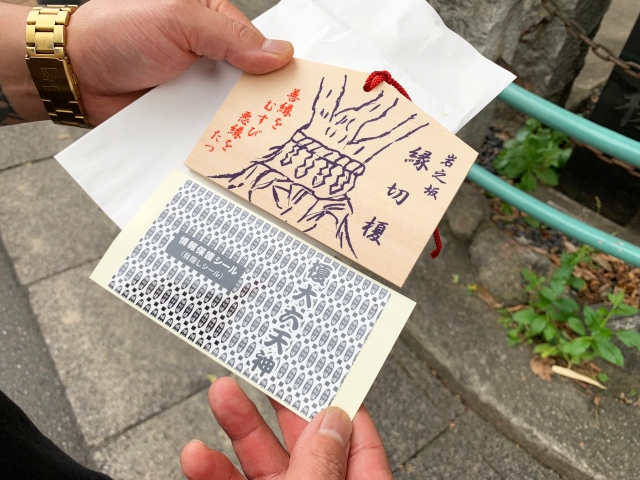 善縁を
むすび
悪縁を
たつ
岩之坂
縁切榎
情報保護シール
(目隠しシール)
榎大六天神